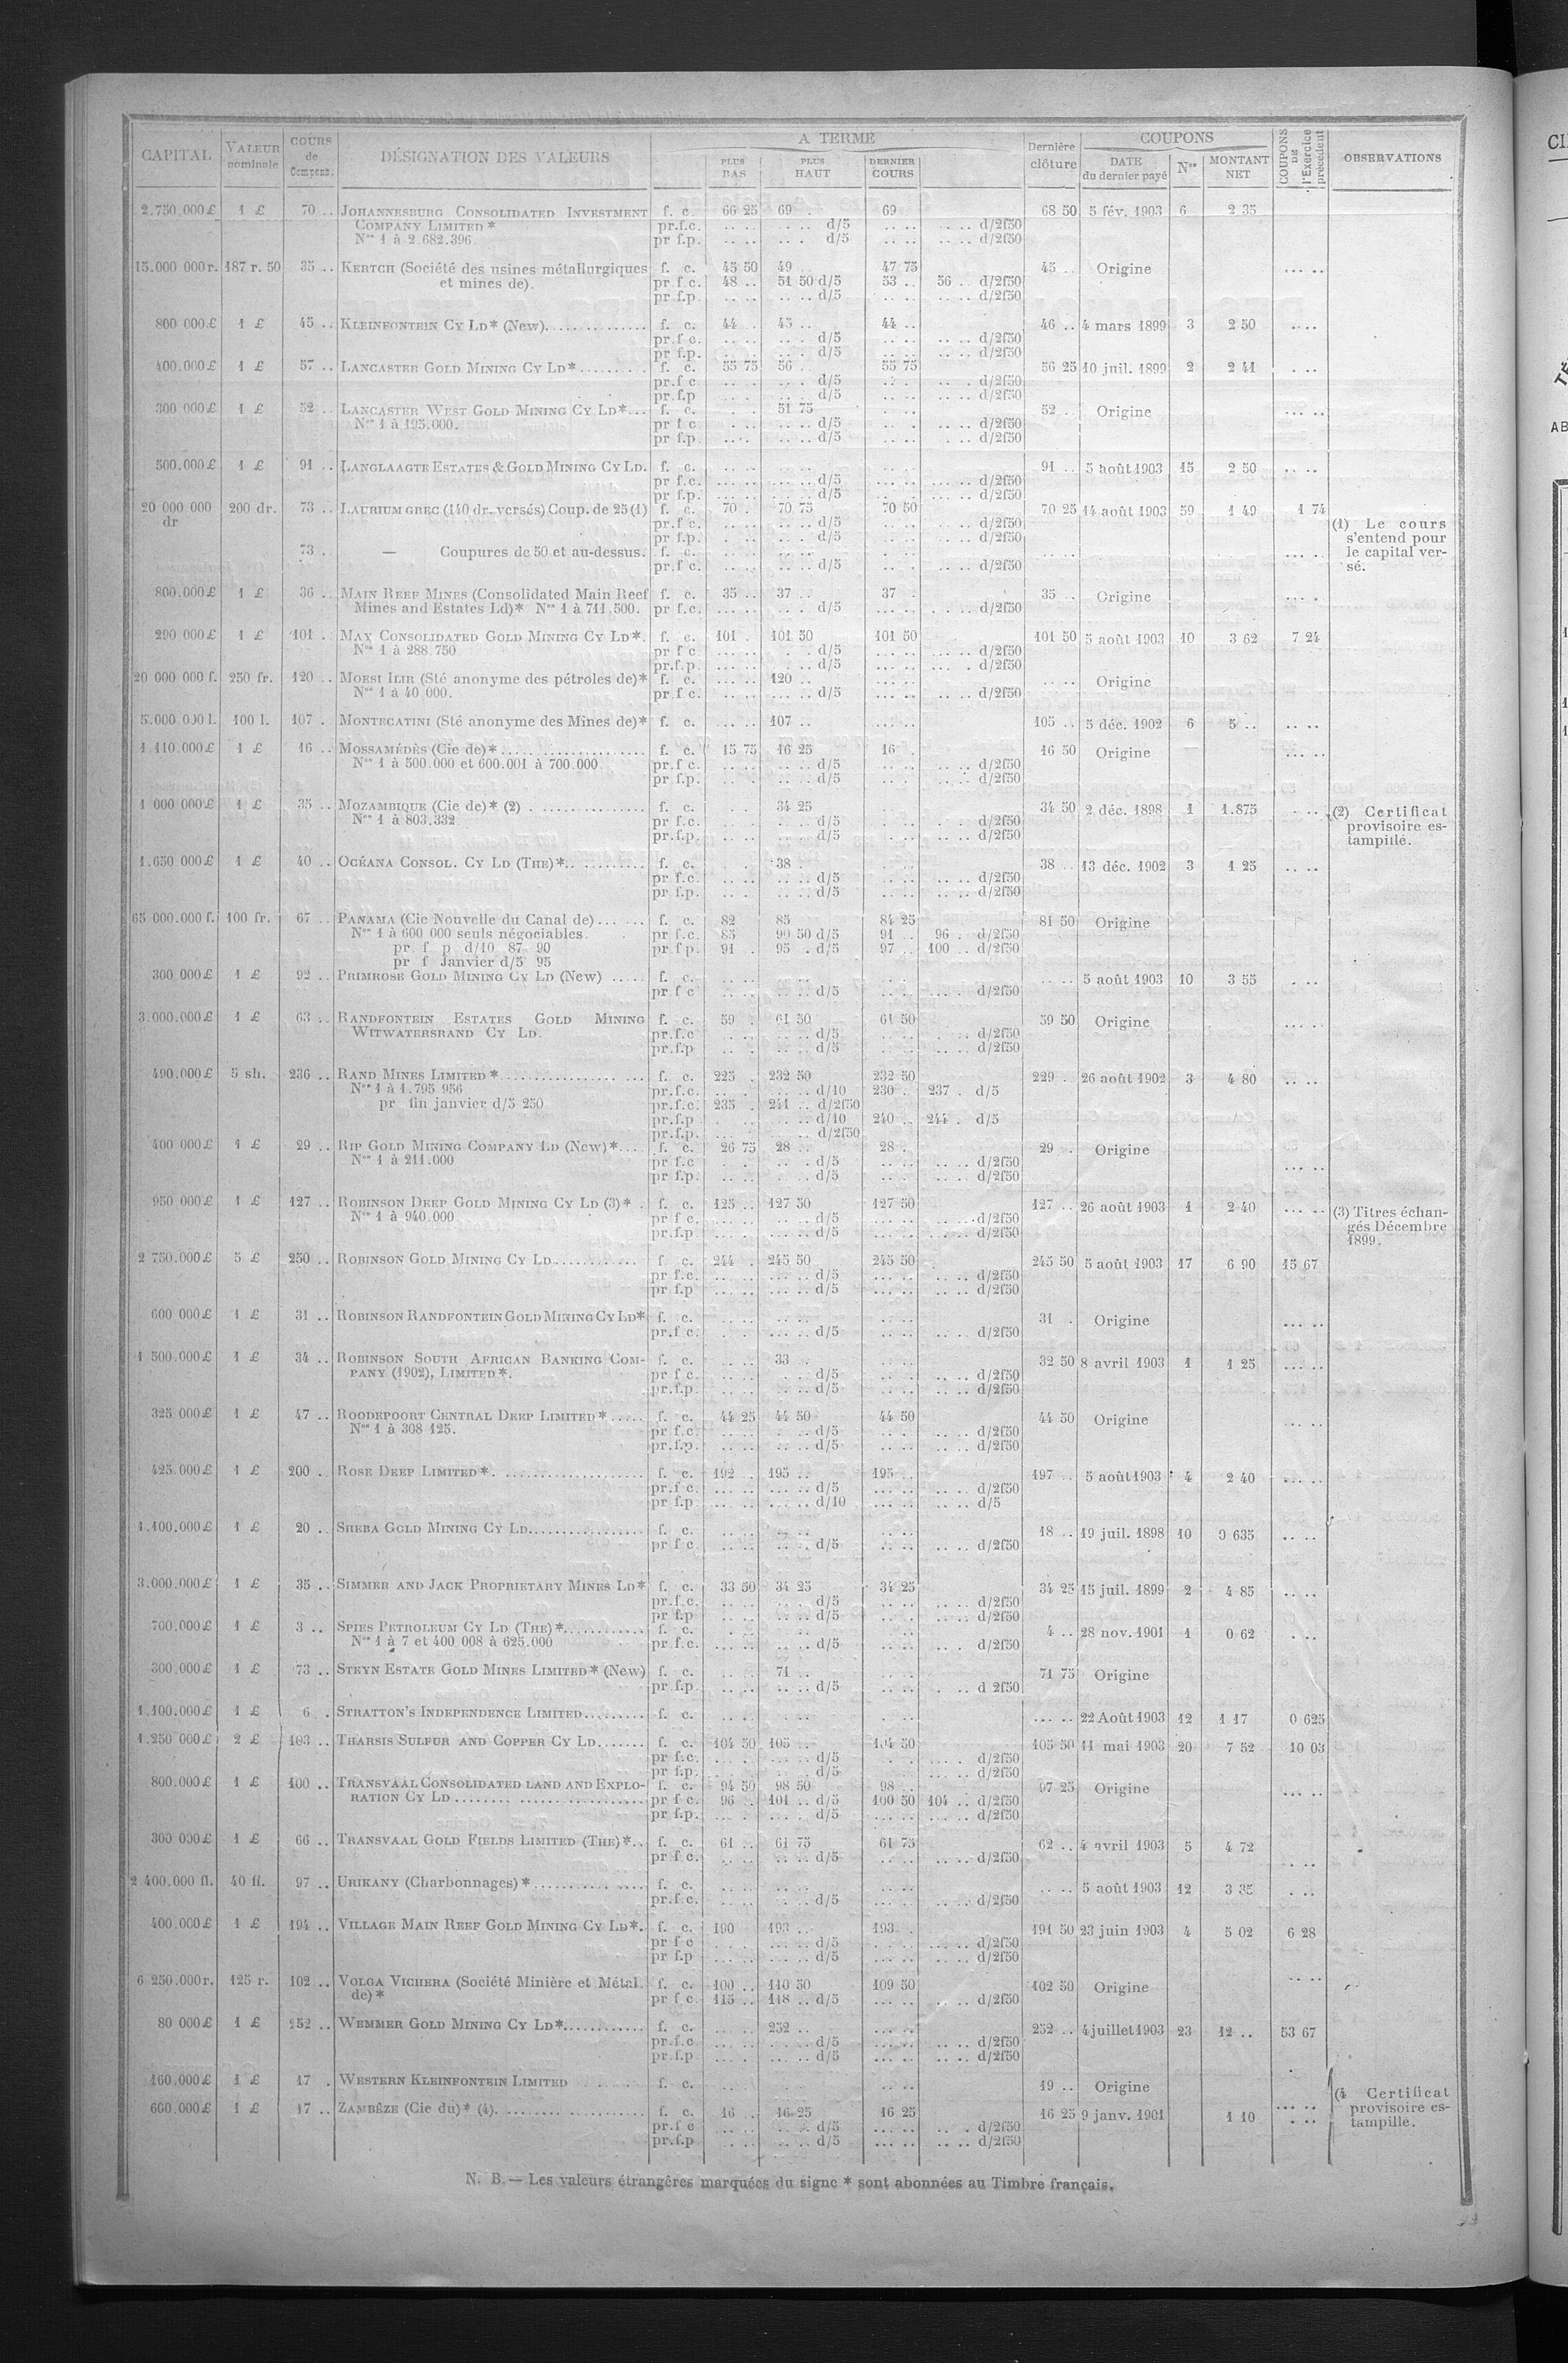 CAPITAL VALEUR nominale COURS de Compens. DÉSIGNATION DES VALEURS A TERME PLUS BAS PLUS HAUT DERNIER COURS Dernière clôture COUPONS DATE du dernier payé Nos MONTANT NET COUPONS DE l'Exercice précédent OBSERVATIONS
2.750.000£ 1 £ 70 .. JOHANNESBURG CONSOLIDATED INVESTMENT f. c. 66 25 69 . 69 68 50 5 fév. 1903 6 2 35
COMPANY LIMITED * pr.f.c. .. .. . .. d/5 .. .. .. .. d/2f50
Nos 1 à 2.682.396. pr f.p. .. .. . .. d/5 .. .. .. .. d/2f50
15.000 000 r. 187 r. 50 35 .. KERTCH (Société des usines métallurgiques f. c. 45 50 49 .. 47 75 45 .. Origine ... ..
et mines de). pr f c. 48 .. 51 50 d/5 53 .. 56 .. d/2f50
pr f.p. .. .. .. .. d/5 .. .. .. .. d/2f50
800 000£ 1 £ 45 .. KLEINFONTEIN CY LD* (New). f. c. 44 .. 45 .. 44 .. 46 .. 4 mars 1899 3 2 50 ....
pr.f c. .. .. .. .. d/5 .. .. .. .. d/2f50
pr f.p. .. .. .. .. d/5 .. .. .. .. d/2f50
400.000£ 1 £ 57 .. LANCASTER GOLD MINING CY LD* f. c. 55 75 56 .. 55 75 56 25 10 juil. 1899 2 2 41 . ..
pr.f c. .. .. .. .. d/5 .. .. .. .. d/2f50
pr.f.p .. .. .. .. d/5 .. .. .. .. d/2f50
300 000£ 1 £ 52 .. LANCASTER WEST GOLD MINING CY LD*... f. c. 51 75 52 . Origine ... ..
Nos 1 à 195.000. pr f c. .. .. .. .. d/5 .. .. .. .. d/2f50
pr f.p. .. .. .. .. d/5 .. .. .. .. d/2f50
500.000£ 1 £ 91 .. LANGLAAGTE ESTATES & GOLD MINING CY LD. f. c. .. .. .. .. 91 .. 5 août 1903 15 2 50 .. ..
pr f.c. .. .. .. .. d/5 .. .. .. .. d/2f50
pr f.p. .. .. .. .. d/5 .. .. .. .. d/2f50
20 000 000 200 dr. 73 .. LAURIUM GREC (140 dr. versés) Coup. de 25 (1) f. c. 70 . 70 75 70 50 70 25 14 août 1903 59 1 49 1 74
dr pr.f c. .. .. .. .. d/5 .. .. .. .. d/2f50 (1) Le cours
pr f.p. .. .. .. .. d/5 .. .. .. .. d/2f50 s'entend pour
73 . — Coupures de 50 et au-dessus. f. c. .. .. .. .. .. .. ... .. le capital ver-
pr.f c. .. .. .. .. d/5 .. .. .. .. d/2f50 sé.
800.000£ 1 £ 36 .. MAIN REEF MINES (Consolidated Main Reef f. c. 35 .. 37 .. 37 . 35 .. Origine ... .
Mines and Estates Ld)* Nos 1 à 711.500. pr f.c. .. .. .. .. d/5 .. .. .. .. d/2f50
290 000£ 1 £ 101 . MAY CONSOLIDATED GOLD MINING CY LD*. f. c. 101 . 101 50 101 50 101 50 5 août 1903 10 3 62 7 24
Nos 1 à 288.750 pr f c .. .. . . d/5 .. .. .. .. d/2f50
pr.f.p. .. .. .. .. d/5 .. .. .. .. d/2f50
20 000 000 f. 250 fr. 120 .. MOESI ILIR (Sté anonyme des pétroles de)* f. c. .. .. 120 .. .. .. Origine
Nos 1 à 40 000. pr.f c. .. .. .. .. d/5 .. .. .. .. d/2f50
5.000 000 l. 100 l. 107 . MONTECATINI (Sté anonyme des Mines de)* f. c. .. .. 107 .. .. .. 105 .. 5 déc. 1902 6 5 .. .. ..
1.110.000£ 1 £ 16 .. MOSSAMÉDÈS (Cie de)* f. c. 15 75 16 25 16 . 16 50 Origine ... ..
Nos 1 à 500.000 et 600.001 à 700.000 pr.f c. .. .. .. .. d/5 .. .. .. .. d/2f50
pr f.p. .. .. .. .. d/5 .. .. .. .. d/2f50
1 000 000£ 1 £ 35 .. MOZAMBIQUE (Cie de)* (2) . f. c. 34 25 34 50 2 déc. 1898 1 1.875 . .. (2) Certificat
Nos 1 à 803.332 pr f.c. . .. d/5 .. .. d/2f50 provisoire es-
pr.f.p. .. .. d/5 .. .. d/2f50 tampillé.
1.650 000£ 1 £ 40 .. OCÉANA CONSOL. CY LD (THE)*. f. c. 38 . 38 .. 13 déc. 1902 3 1 25 .. ..
pr f.c. .. .. .. .. d/5 .. .. .. .. d/2f50
pr f.p. .. .. .. .. d/5 .. .. .. .. d/2f50
65 000.000 f. 100 fr. 67 .. PANAMA (Cie Nouvelle du Canal de)... ... f. c. 82 85 84 25 81 50 Origine
Nos 1 à 600 000 seuls négociables. pr f.c. 85 90 50 d/5 91 .. 96 . d/2f50
pr. f p d/10 87 90 pr f p. 91 . 95 . d/5 97 .. 100 .. d/2f50
pr f Janvier d/5 95
300 000£ 1 £ 92 .. PRIMROSE GOLD MINING CY LD (New) ..... f. c. .. .. .. .. 5 août 1903 10 3 55 . ..
pr.f c .. .. .. .. d/5 .. .. .. .. d/2f50
3.000.000£ 1 £ 63 .. RANDFONTEIN ESTATES GOLD MINING f. c. 59 . 61 50 61 50 59 50 Origine ... ..
WITWATERSRAND CY LD. pr.f.c .. .. .. .. d/5 .. .. .. .. d/2f50
pr.f.p .. .. .. .. d/5 .. .. .. .. d/2f50
490.000£ 5 sh. 236 .. RAND MINES LIMITED * f. c. 225 . 232 50 232 50 229 .. 26 août 1902 3 4 80 .. ..
Nos 1 à 1.795 956 pr.f.c. .. .. .. .. d/10 230 . 237 . d/5
pr fin janvier d/5 250 pr.f.c. 235 . 241 .. d/2f50
pr.f.p .. .. d/10 240 .. 244 . d/5
pr.f.p. .. .. d/2f50
400 000£ 1 £ 29 .. RIP GOLD MINING COMPANY LD (New)*... f. c. 26 75 28 .. 28 . 29 . Origine
Nos 1 à 211.000 pr f.c .. .. .. .. d/5 .. .. .. .. d/2f50 ... ..
pr f.p. .. .. .. .. d/5 .. .. .. .. d/2f50
950 000£ 1 £ 127 .. ROBINSON DEEP GOLD MINING CY LD (3)* . f. c. 125 .. 127 50 127 50 127 .. 26 août 1903 1 2 40 ... .. (3) Titres échan-
Nos 1 à 940.000 pr f c. .. .. .. .. d/5 .. .. .. .. d/2f50 gés Décembre
pr f.p. .. .. .. .. d/5 .. .. .. .. d/2f50 1899.
2 750.000£ 5 £ 250 .. ROBINSON GOLD MINING CY LD f c. 244 . 245 50 245 50 245 50 5 août 1903 17 6 90 15 67
pr f.c. .. .. .. .. d/5 .. .. .. .. d/2f50
pr f.p .. .. .. .. d/5 .. .. .. .. d/2f50
600 000£ 1 £ 31 .. ROBINSON RANDFONTEIN GOLD MINING CY LD* f. c. .. .. .. .. 31 . Origine ... ..
pr.f c. .. .. .. .. d/5 .. .. .. .. d/2f50
1 500.000£ 1 £ 34 .. ROBINSON SOUTH AFRICAN BANKING COM- f. c. .. .. 33 .. 32 50 8 avril 1903 1 1 25 ... ..
PANY (1902), LIMITED *. pr f c. .. .. .. .. d/5 .. .. .. .. d/2f50
pr.f.p. .. .. .. .. d/5 .. .. .. .. d/2f50
325 000£ 1 £ 47 .. ROODEPOORT CENTRAL DEEP LIMITED * f. c. 44 25 44 50 44 50 44 50 Origine ... ..
Nos 1 à 308 125. pr f.c. .. .. .. .. d/5 .. .. .. .. d/2f50
pr.f.p. .. .. .. .. d/5 .. .. .. .. d/2f50
425.000£ 1 £ 200 .. ROSE DEEP LIMITED *. f. c. 192 .. 195 .. 195 .. 197 .. 5 août 1903 4 2 40 ... ..
pr.f c. .. .. .. .. d/5 .. .. .. .. d/2f50
pr f.p .. .. .. .. d/10 .. .. .. .. d/5
1.100.000£ 1 £ 20 .. SHEBA GOLD MINING CY LD f. c. .. .. .. .. 18 .. 19 juil. 1898 10 0 635 .. ..
pr f c. .. .. .. .. d/5 .. .. .. .. d/2f50
3.000.000£ 1 £ 35 .. SIMMER AND JACK PROPRIETARY MINES LD* f. c. 33 50 34 25 34 25 34 25 15 juil. 1899 2 4 85 .. ..
pr.f.c. .. .. .. .. d/5 .. .. .. .. d/2f50
pr f.p .. .. .. .. d/5 .. .. .. .. d/2f50
700.000£ 1 £ 3 .. SPIES PETROLEUM CY LD (THE)*. f. c. .. .. .. .. 4 .. 28 nov. 1901 1 0 62 . ..
Nos 1 à 7 et 400.008 à 625.000 pr.f.c. .. .. .. .. d/5 .. .. .. .. d/2f50
300.000£ 1 £ 73 .. STEYN ESTATE GOLD MINES LIMITED * (New) f. c. .. .. 71 .. 71 75 Origine
pr f.p. .. .. .. .. d/5 .. .. .. .. d 2f50
1.100.000£ 1 £ 6 . STRATTON'S INDEPENDENCE LIMITED f. c. .. .. .. .. ... .. 22 Août 1903 12 1 17 0 625
1.250 000£ 2 £ 103 .. THARSIS SULFUR AND COPPER CY LD f. c. 104 50 105 .. 104 50 105 50 11 mai 1903 20 7 52 10 03
pr f.c. .. .. .. .. d/5 .. .. .. .. d/2f50
pr f.p. .. .. .. .. d/5 .. .. .. .. d/2f50
800.000£ 1 £ 100 .. TRANSVAAL CONSOLIDATED LAND AND EXPLO- f. c. 94 50 98 50 98 .. 97 25 Origine ... ..
RATION CY LD pr f c. 96 .. 101 .. d/5 100 50 104 .. d/2f50
pr f.p. .. .. .. .. d/5 .. .. .. .. d/2f50
300 000£ 1 £ 66 .. TRANSVAAL GOLD FIELDS LIMITED (THE)*.. f. c. 61 .. 61 75 61 75 62 .. 4 avril 1903 5 4 72
pr f c. .. .. .. .. d/5 .. .. .. .. d/2f50 . ..
2 400.000 fl. 40 fl. 97 .. URIKANY (Charbonnages) * f. c. .. .. .. .. .. .. 5 août 1903 12 3 35 . ..
pr.f.c. .. .. .. .. d/5 .. .. .. .. d/2f50
400.000£ 1 £ 194 .. VILLAGE MAIN REEF GOLD MINING CY LD*. f. c. 190 193 .. 193 . 191 50 23 juin 1903 4 5 02 6 28
pr f c .. .. .. .. d/5 .. .. .. .. d/2f50
pr f.p .. .. .. .. d/5 .. .. .. .. d/2f50
6 250.000 r. 125 r. 102 .. VOLGA VICHERA (Société Minière et Métal. f. c. 100 .. 110 50 109 50 102 50 Origine ... ..
de) * pr f c. 115 .. 118 .. d/5 .. .. .. .. d/2f50
80 000£ 1 £ 252 .. WEMMER GOLD MINING CY LD*. f. c. .. .. 252 .. .. .. 252 .. 4 juillet 1903 23 12 .. 53 67
pr.f.c .. .. .. .. d/5 .. .. .. .. d/2f50
pr f.p .. .. .. .. d/5 .. .. .. .. d/2f50
160.000£ 1 £ 17 . WESTERN KLEINFONTEIN LIMITED f. c. .. .. .. .. 19 .. Origine (4 Certificat
600.000£ 1 £ 17 .. ZAMBÈZE (Cie du)* (4). f. c. 16 .. 16 25 16 25 16 25 9 janv. 1901 1 10 ... .. provisoire es-
pr.f c .. .. .. .. d/5 .. .. .. .. d/2f50 tampillé.
pr.f.p .. .. .. .. d/5 .. .. .. .. d/2f50
N. B. — Les valeurs étrangères marquées du signe * sont abonnées au Timbre français.